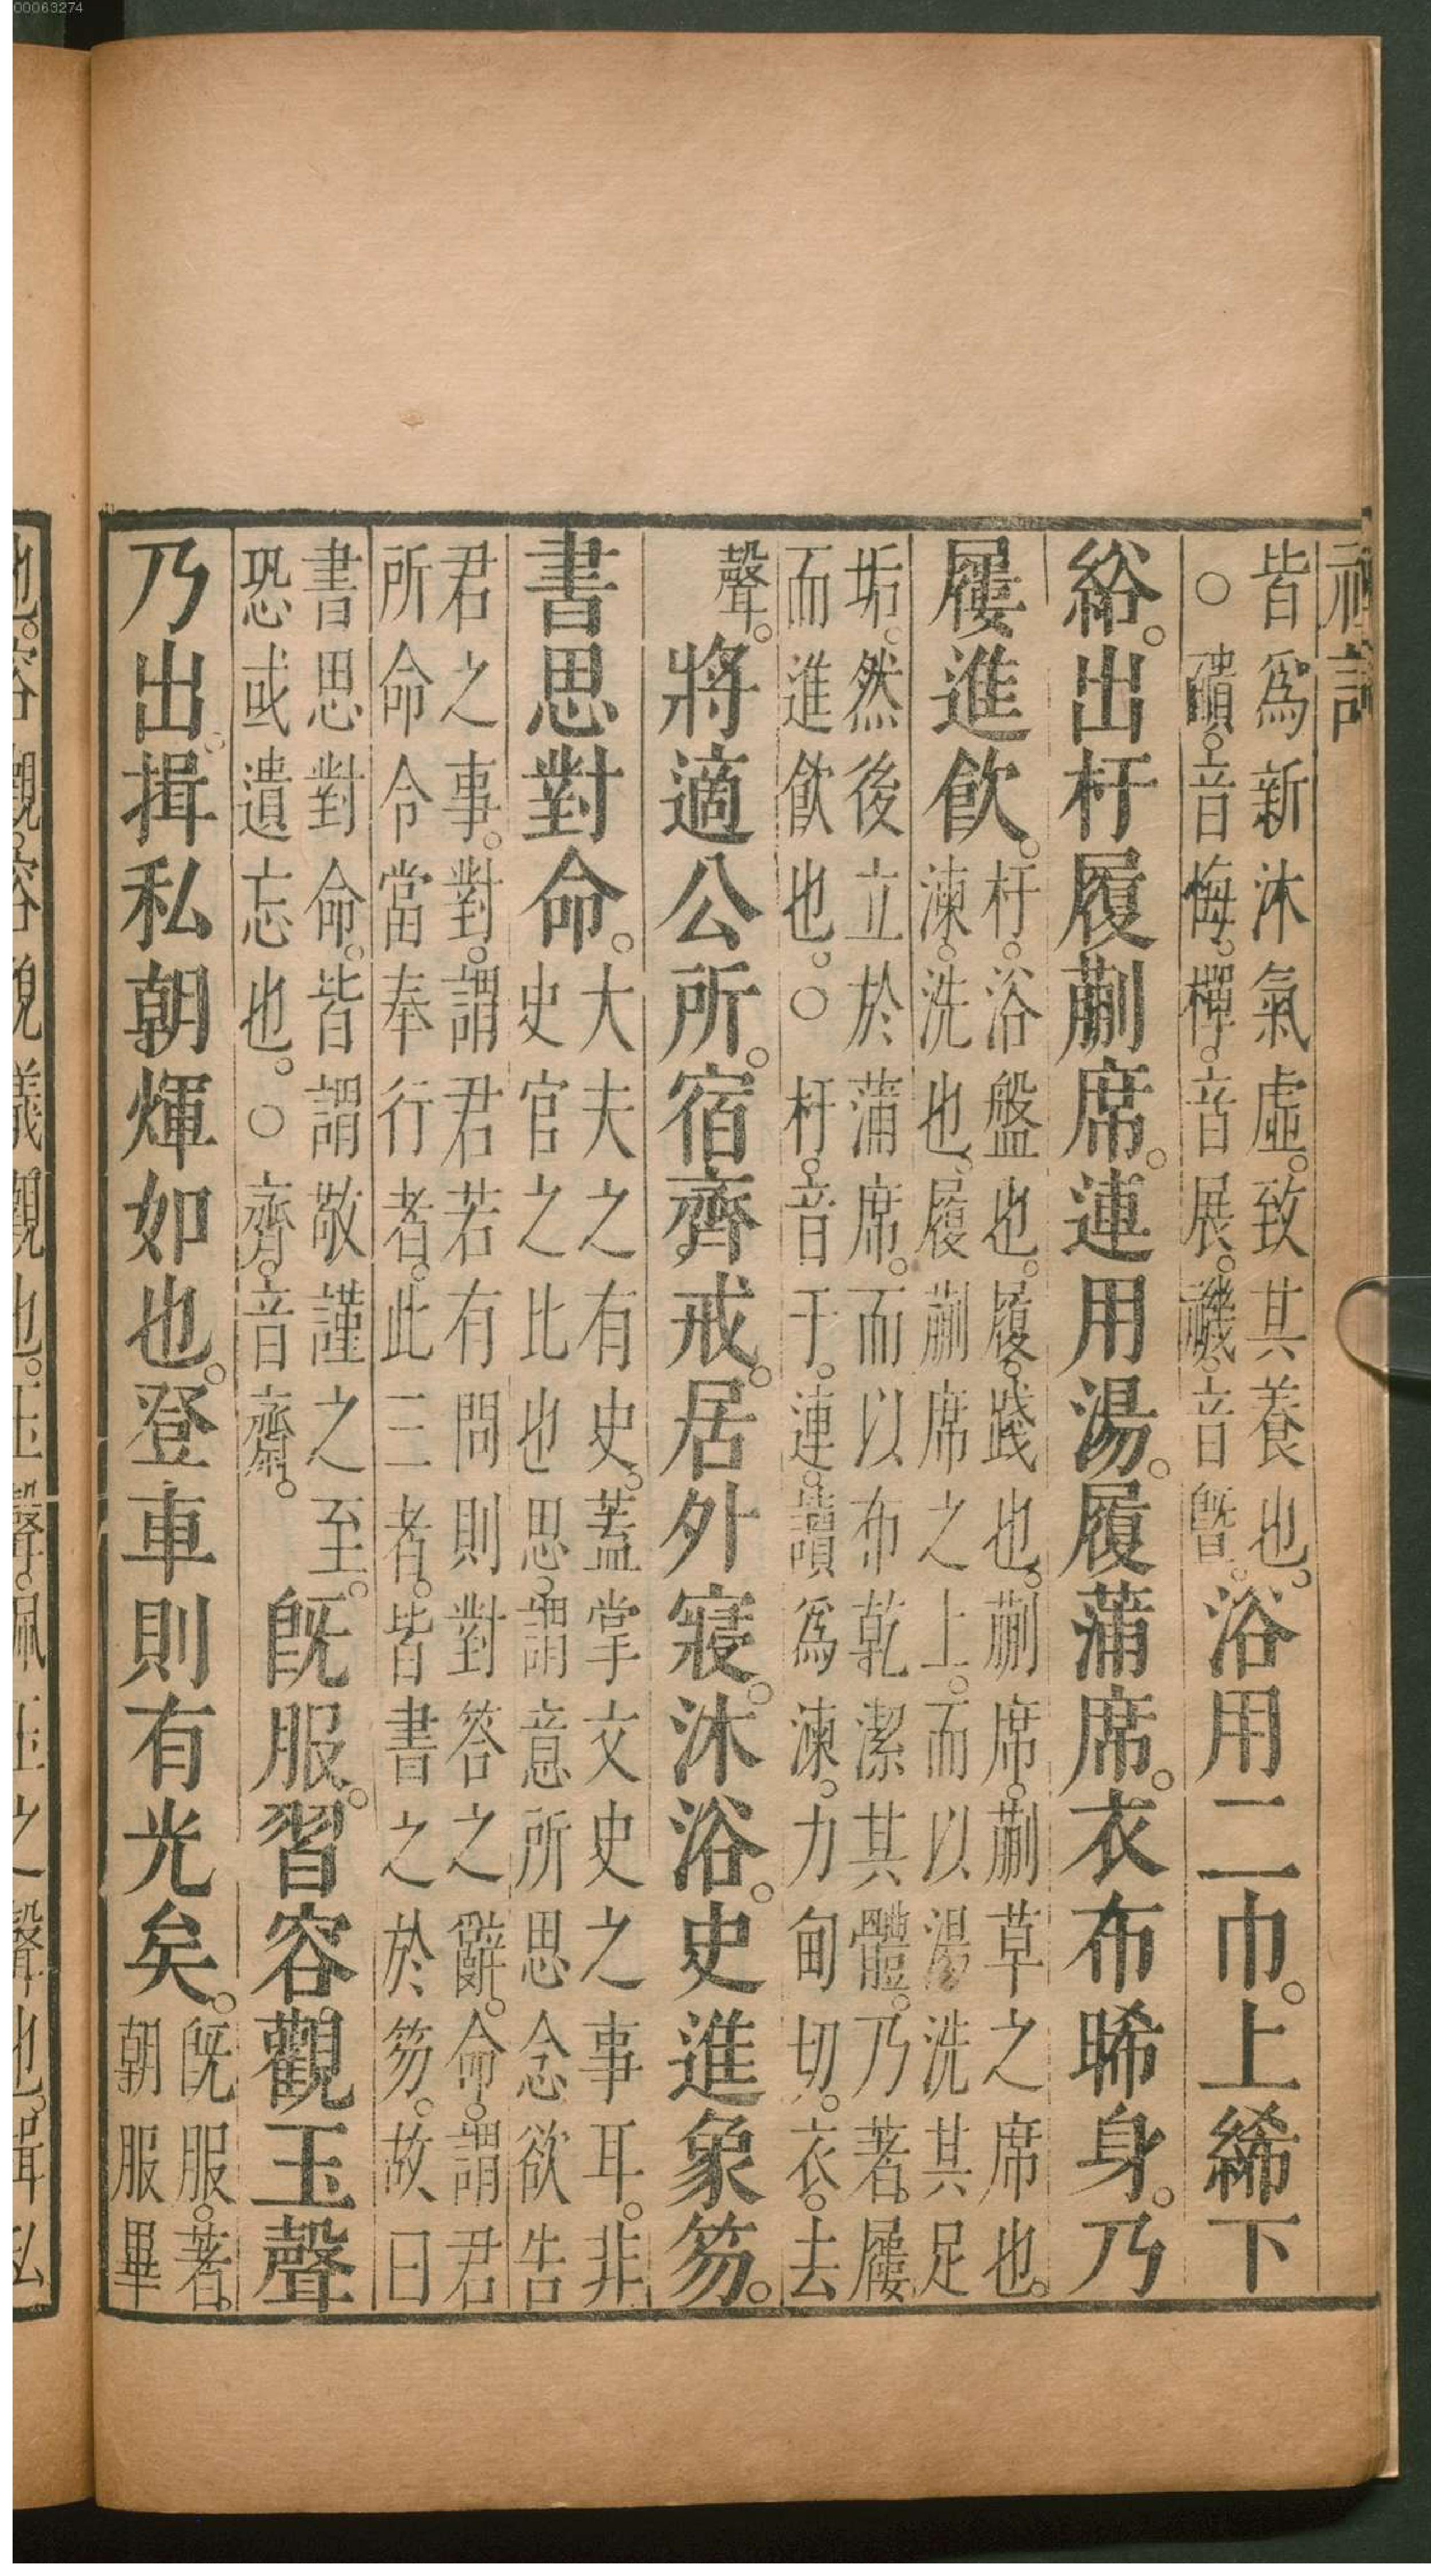 00063274
禮記
皆爲新沐氣虛。致其養也。
○靧。音悔。樿。音展。禨。音旣。浴用二巾。上絺下
綌。出杅履蒯席。連用湯。履蒲席。衣布晞身。乃
屨進飮。杅。浴盤也。履。踐也。蒯席。蒯草之席也。
湅。洗也。履蒯席之上。而以湯洗其足
垢。然後立於蒲席。而以布乾潔其體。乃著。屨
而進飮也。○杅。音于。連。讀爲湅。力甸切。衣。去
聲。將適公所。宿齊戒。居外寢。沐浴。史進象笏。
書思對命。大夫之有史。蓋掌文史之事耳。非
史官之比也思。謂意所思念欲告
君之事。對。謂君若有問則對答之辭。命。謂君
所命令當奉行者。此三者。皆書之於笏。故曰
書思對命。皆謂敬謹之至。
恐或遺忘也。○齊。音齋。旣服。習容觀玉聲
乃出揖私朝煇如也。登車則有光矣。旣服。著。
朝服畢
也。容觀。容貌儀觀也。玉聲。佩玉之聲也。揖私